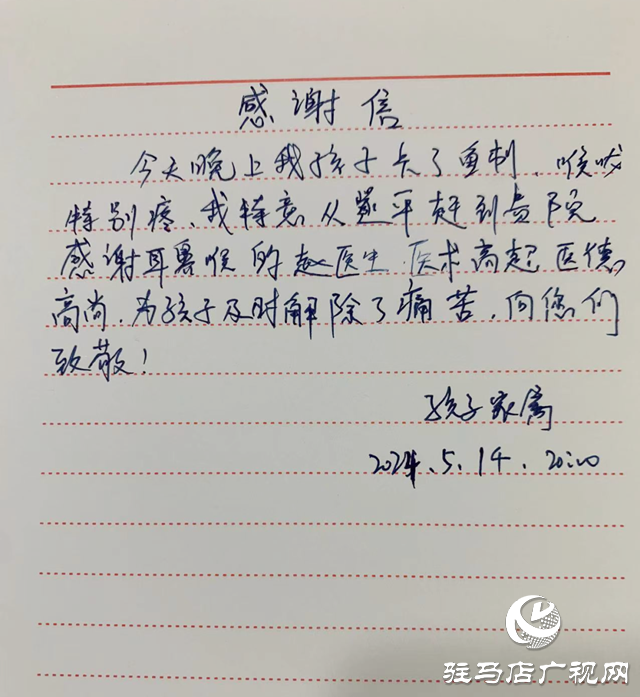 感谢信
今天晚上我孩子卡了鱼刺、喉咙
特别疼、我特意从遂平赶到贵院
感谢耳鼻喉的赵医生.医术高起医德
高尚.为孩子及时解除了痛苦.向您们
致敬!
孩子家属
2024.5.14.20:00
驻马店广视网